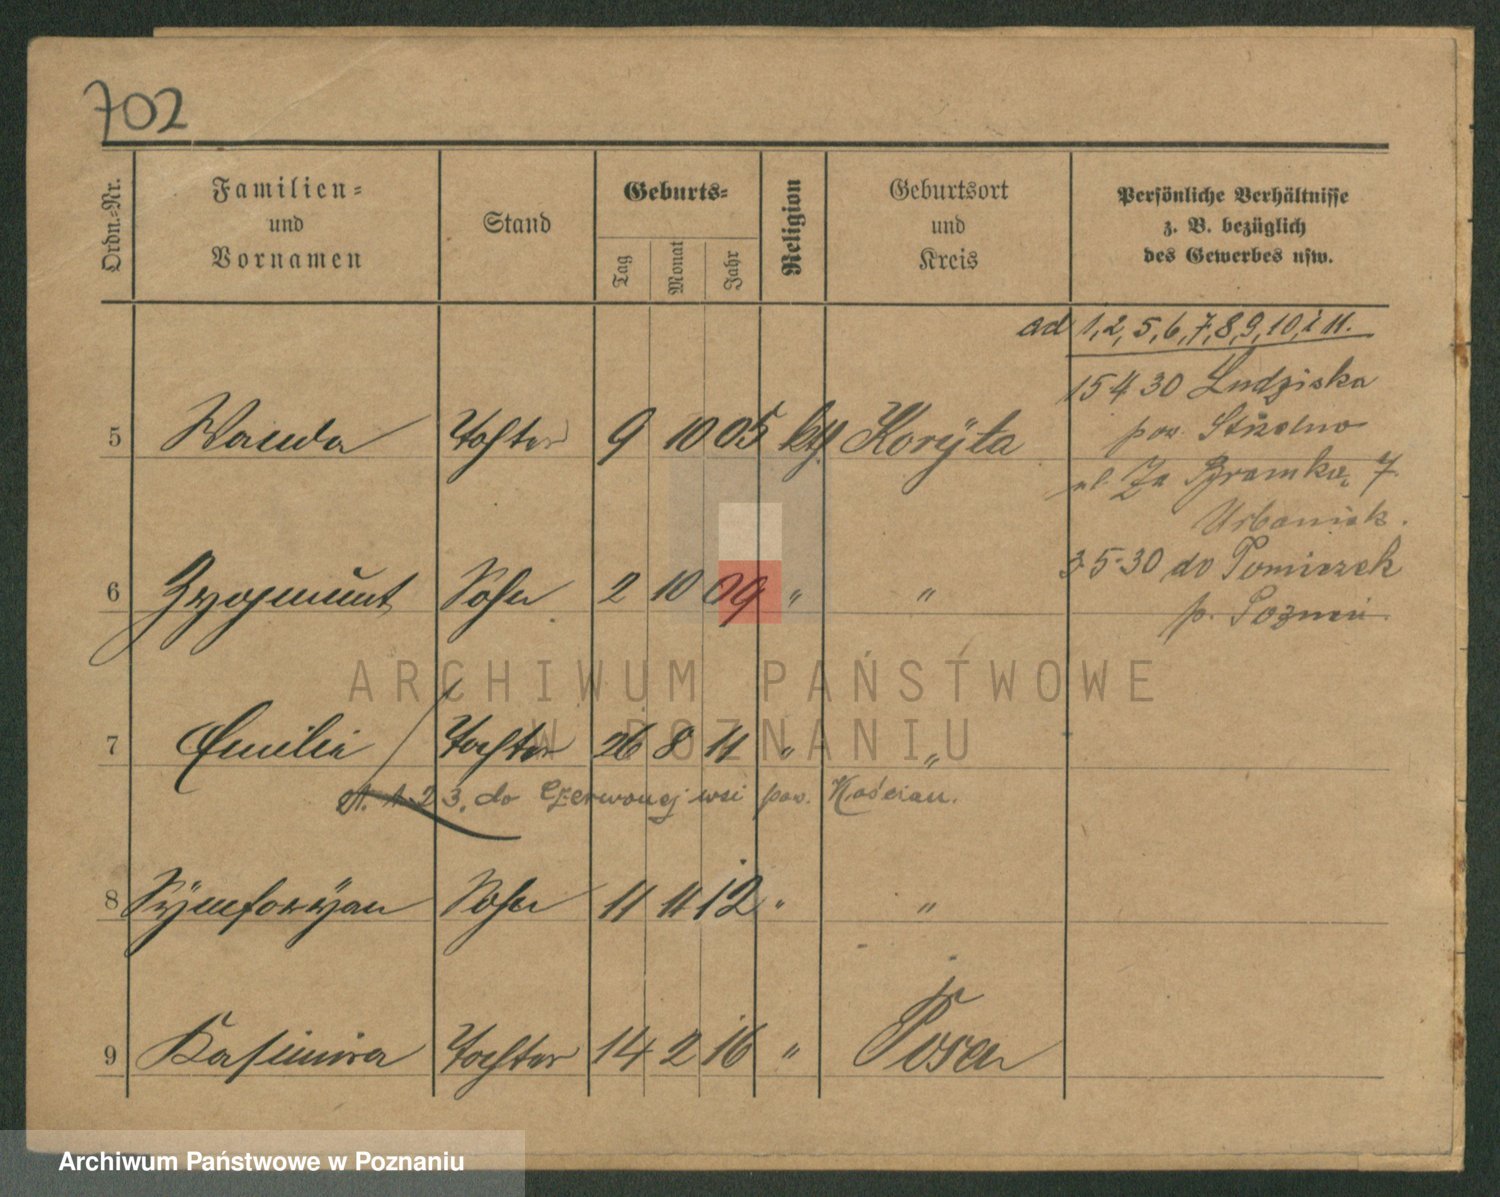 702
Ordn.-Nr.
Familien-
und
Vornamen
Stand
Geburts-
Tag
Monat
Jahr
Religion
Geburtsort
und
Kreis
Persönliche Verhältnisse
z. B. bezüglich
des Gewerbes usw.
ad 1, 2, 5, 6, 7, 8, 9, 10, i 11.
15 4 30 Ludziska
pow. Strzelno
5 Wanda Tochter 9 10 05 kth Koryta
ul. Za Bramką 7
Urbaniak.
3-5-30 do
p. Poznań
6 Zygmunt Sohn 2 10 09 " "
ARCHIWUM PAŃSTWOWE
W POZNANIU
7 Emilie Tochter 26 8 11 " "
1 2 3. do Czerwonej wsi pow. Kościan.
8 Symforyan Sohn 11 11 12 " "
9 Kasimira Tochter 14 2 16 " Posen
Archiwum Państwowe w Poznaniu